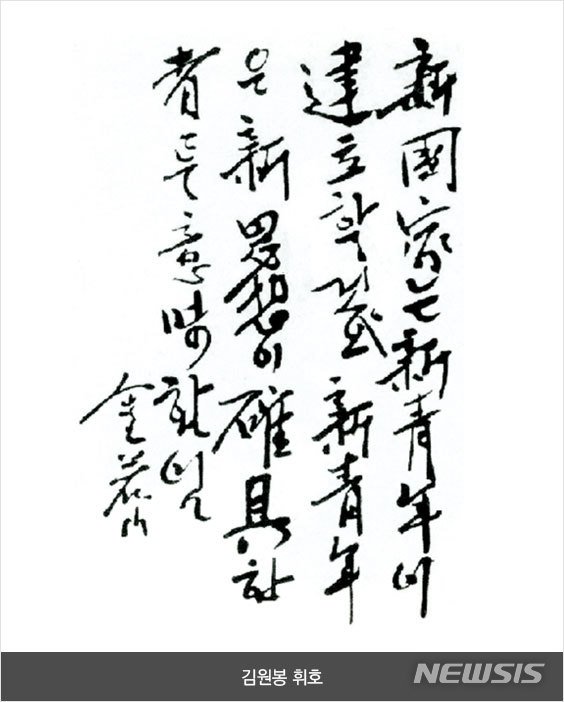 新國家는 新靑年이
建立할 新靑年
은 新思想이 確具한
者를 意味
金若山
김원봉 휘호
NEWSIS